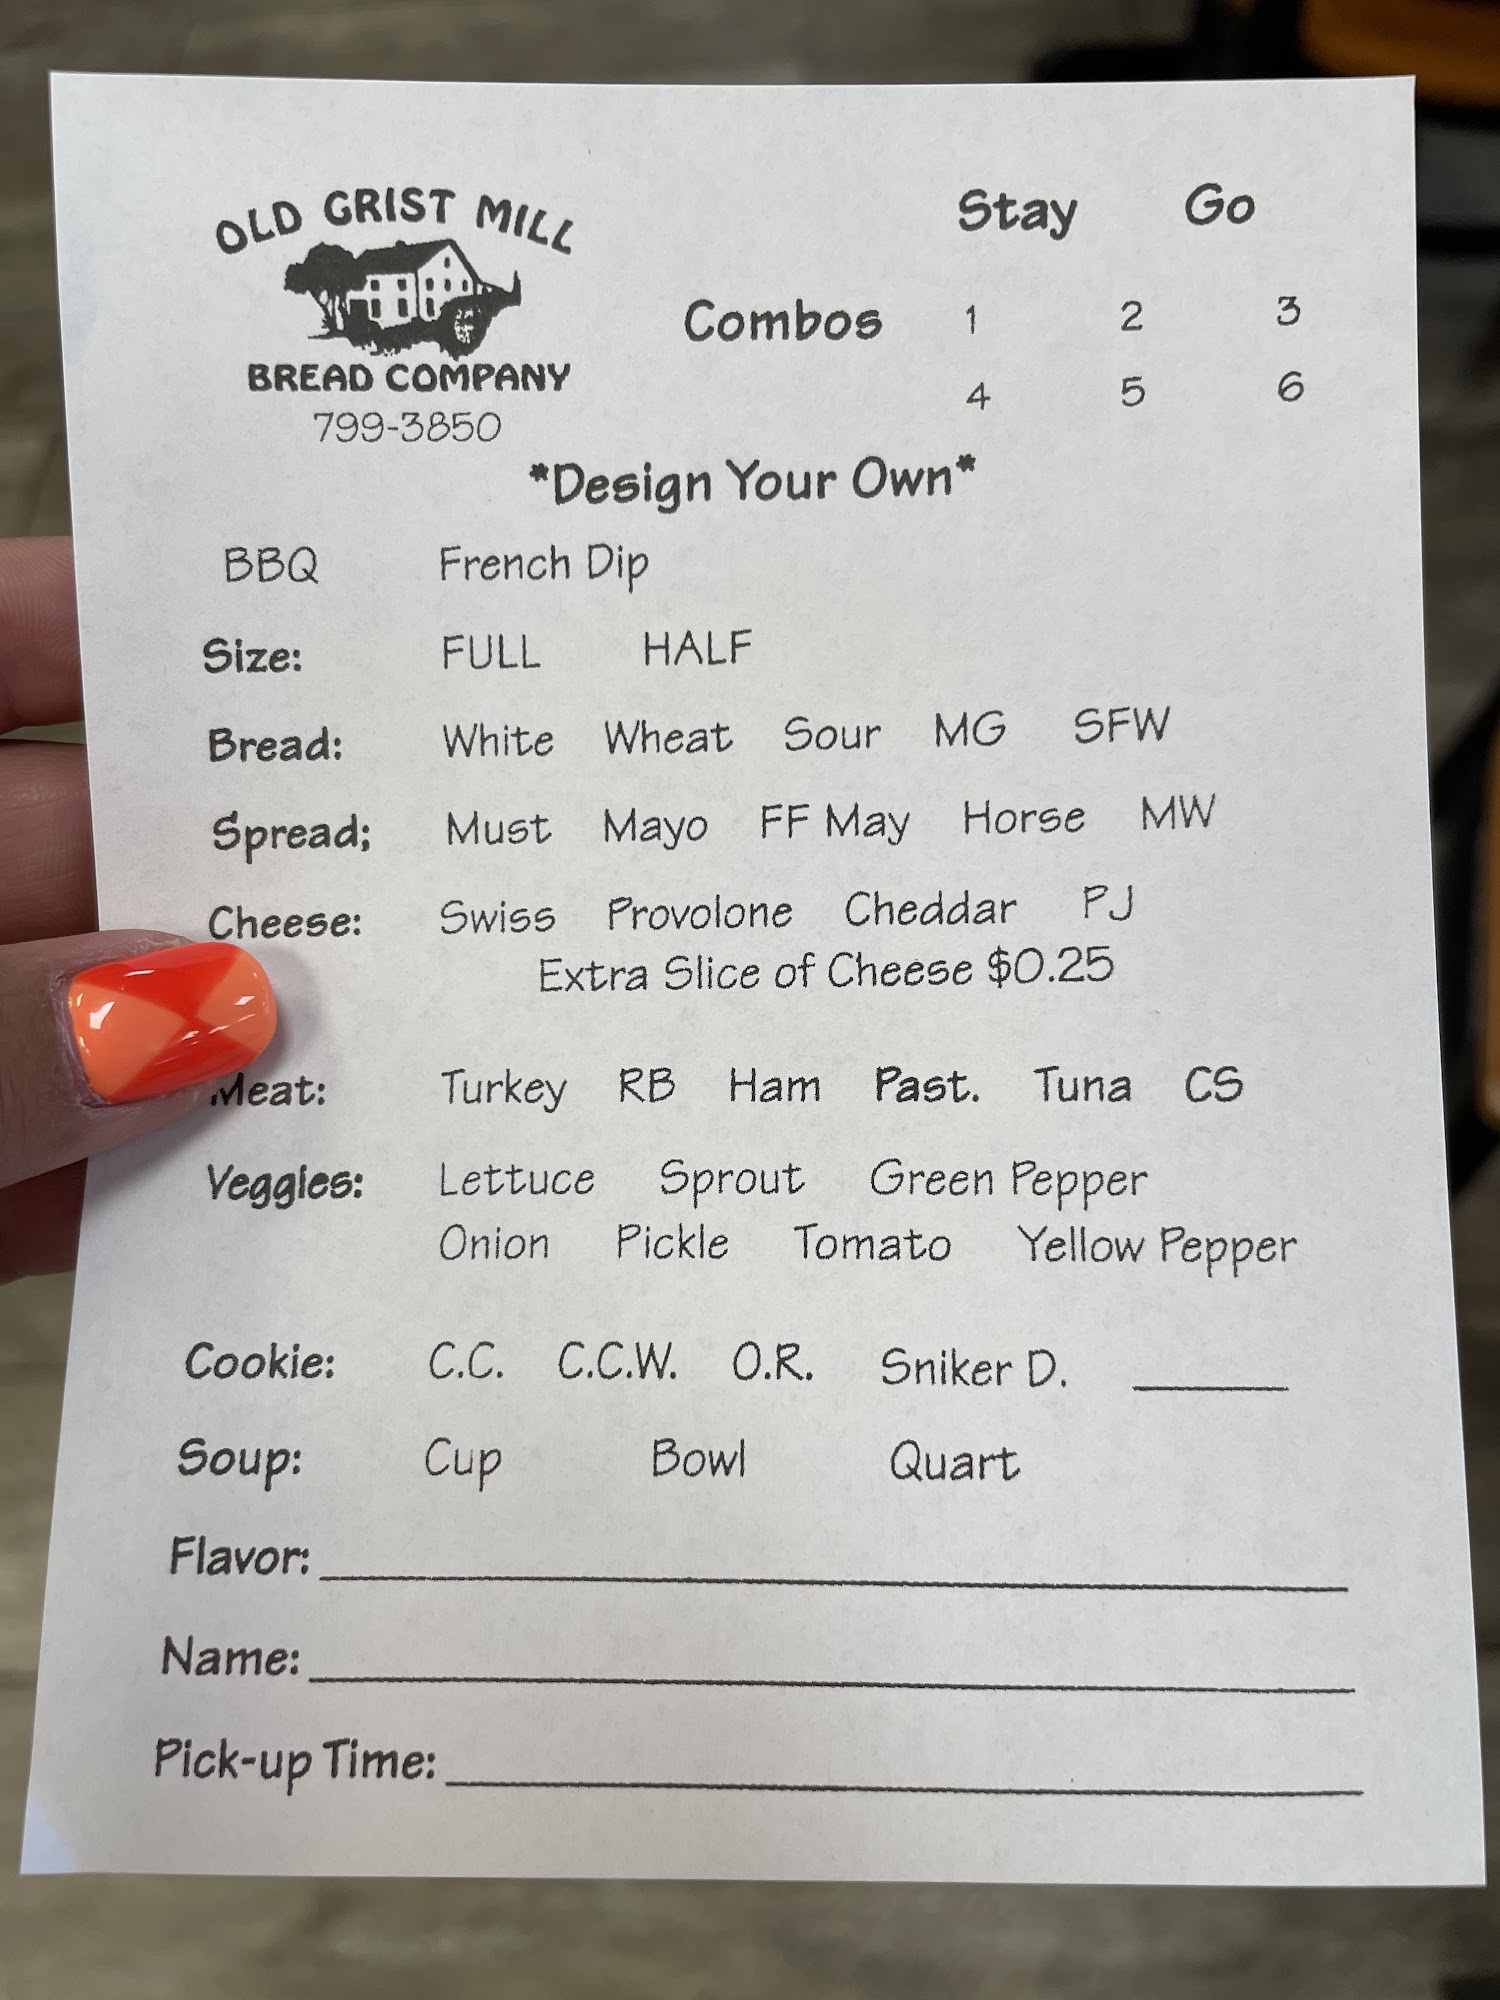 OLD GRIST MILL
BREAD COMPANY
799-3850
Stay Go
Combos 1 2 3
4 5 6
*Design Your Own*
BBQ French Dip
Size: FULL HALF
Bread: White Wheat Sour MG SFW
Spread; Must Mayo FF May Horse MW
Cheese: Swiss Provolone Cheddar PJ
Extra Slice of Cheese $0.25
Meat: Turkey RB Ham Past. Tuna CS
Veggies: Lettuce Sprout Green Pepper
Onion Pickle Tomato Yellow Pepper
Cookie: C.C. C.C.W. O.R. Sniker D. ______
Soup: Cup Bowl Quart
Flavor:
Name:
Pick-up Time: